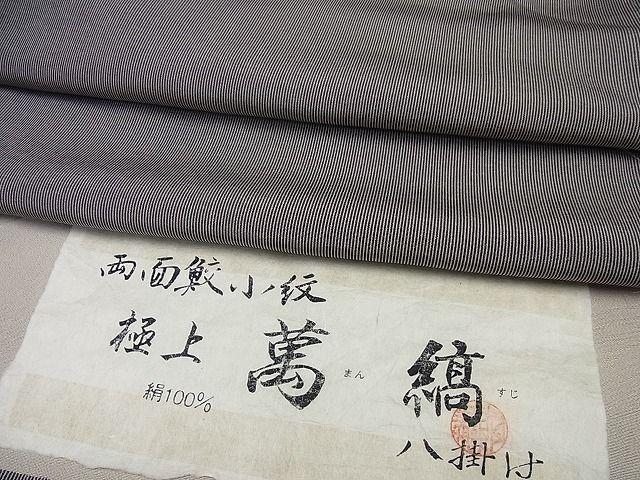 両面鮫小紋
極上 萬 まん 縞 すじ
絹100%
八掛け